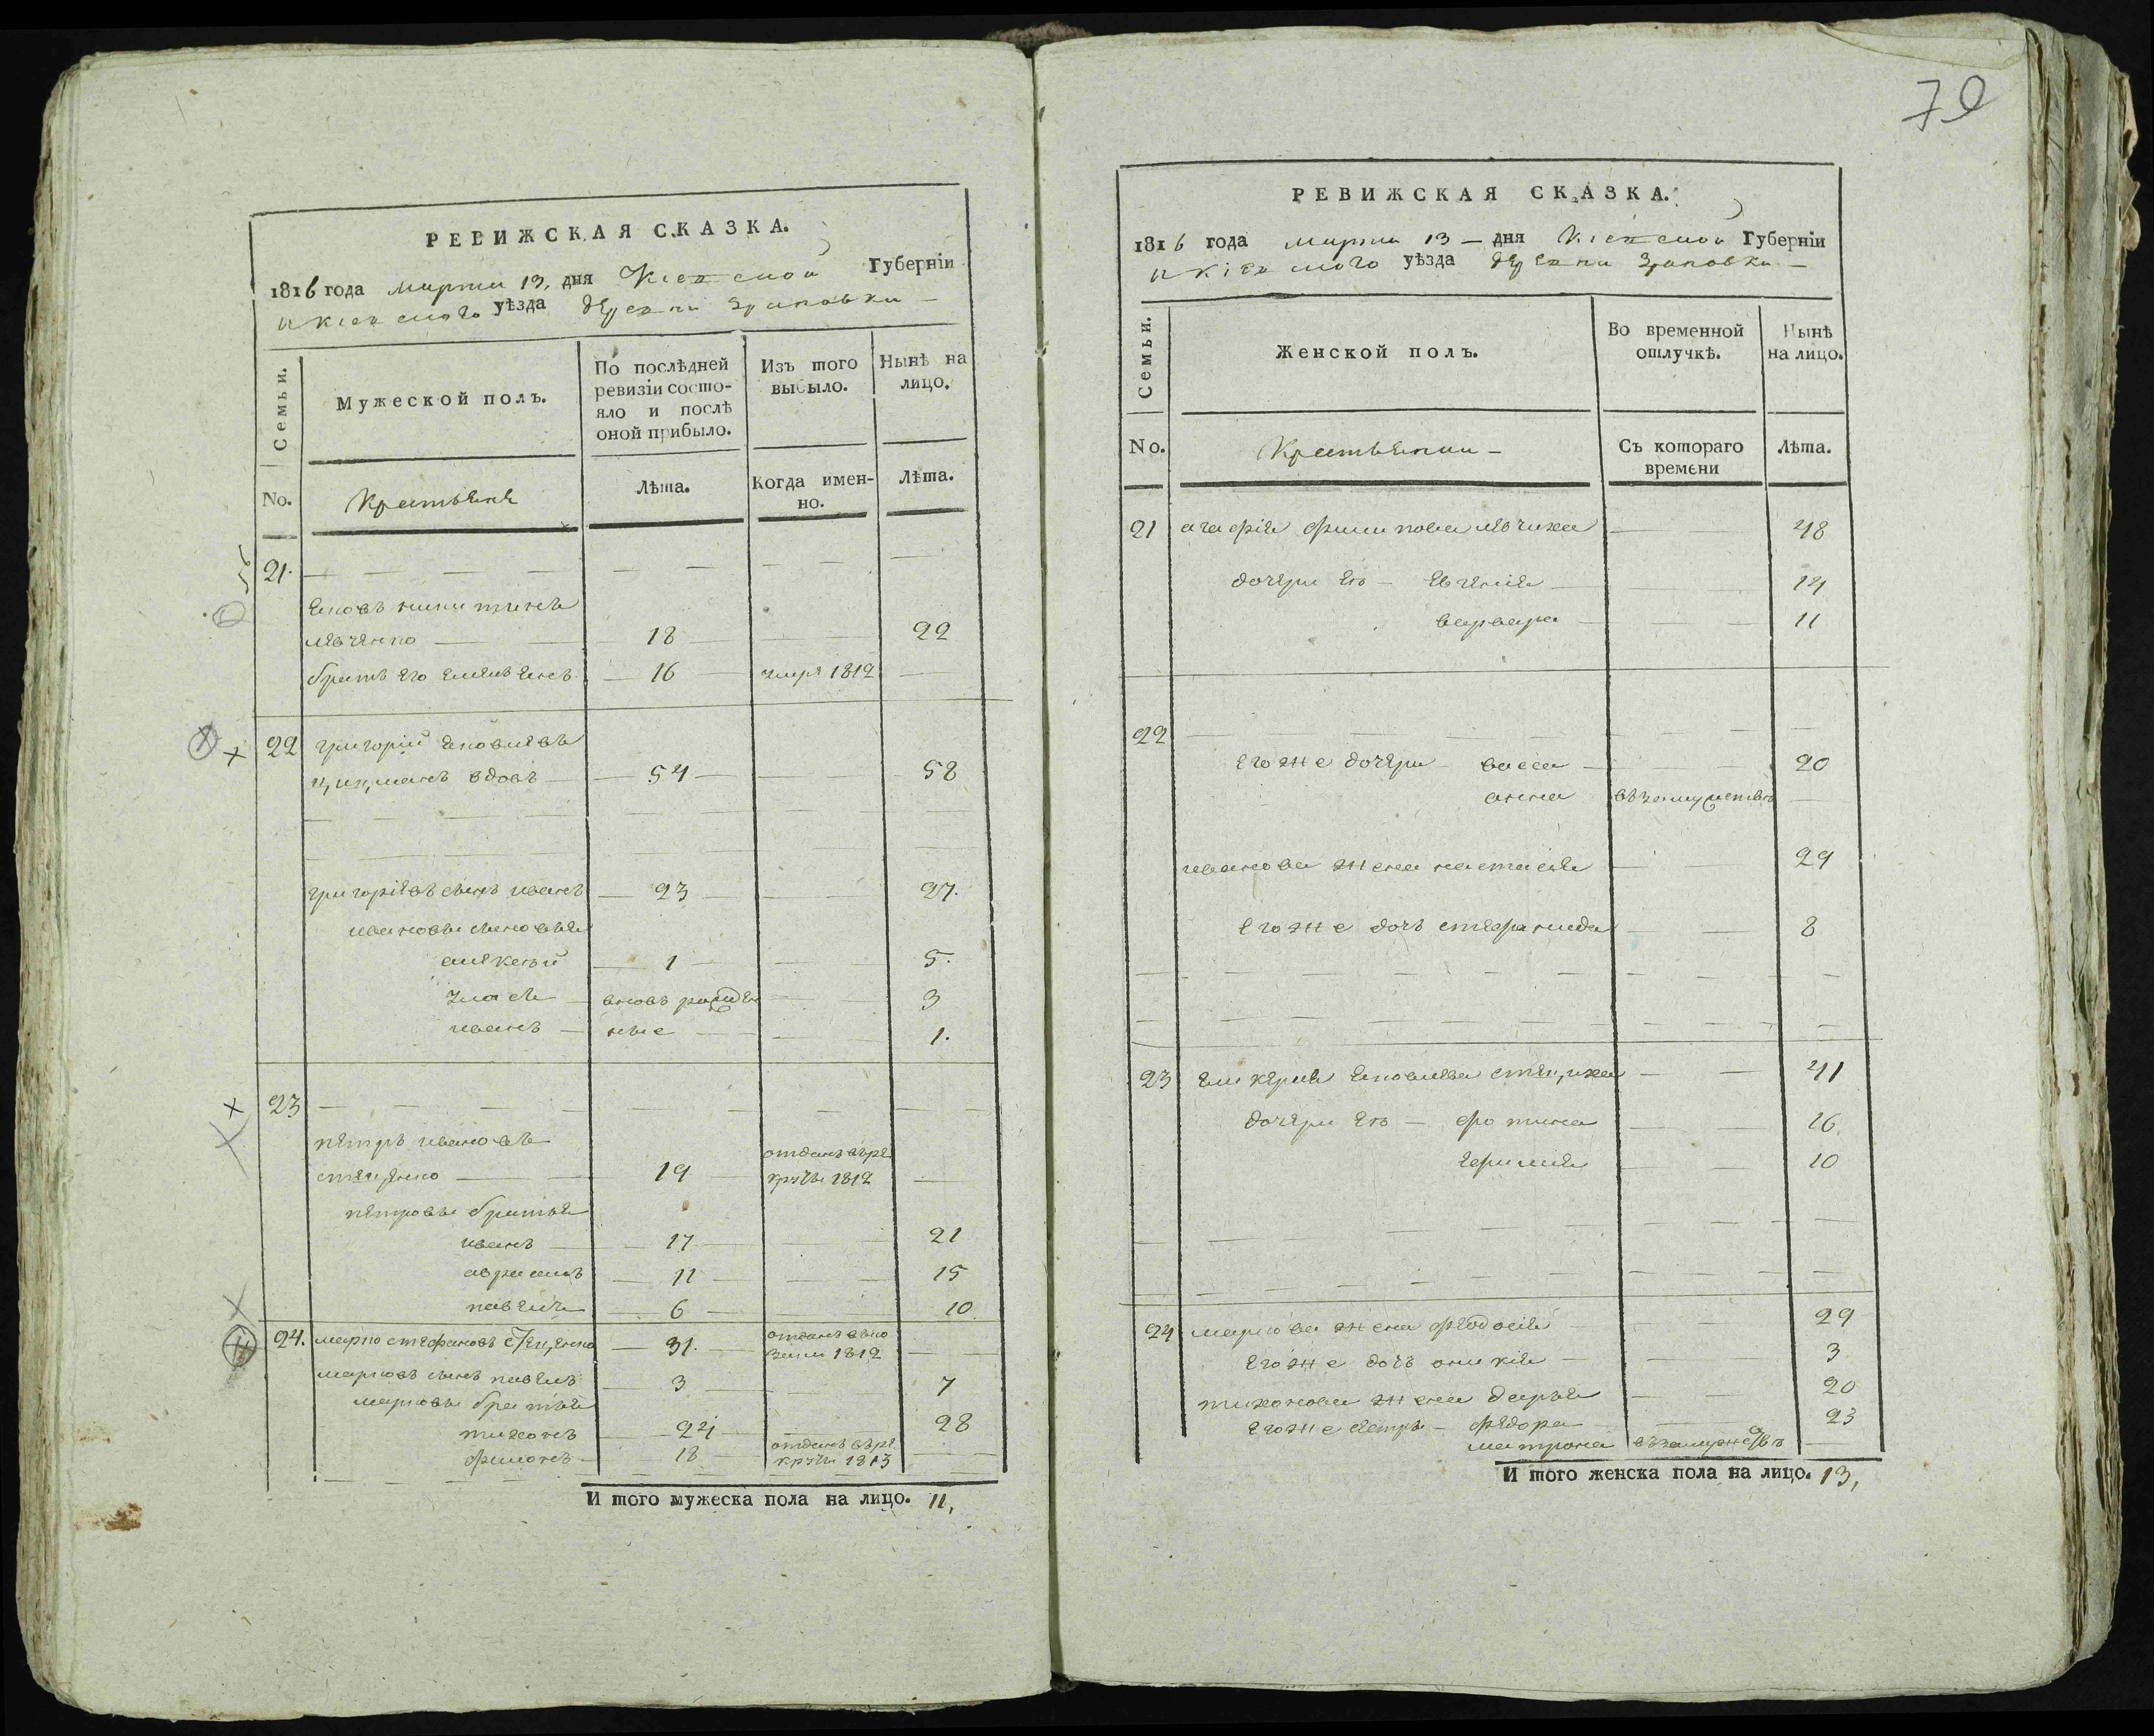 РЕВИЖСКАЯ СКАЗКА.
1816 года марта 13, дня Киевской Губерніи
и киевского уѣзда деревни
Семьи.
Мужеской полъ.
По послѣдней ревизіи состояло и послѣ оной прибыло.
Изъ того выбыло.
Нынѣ на лицо.
No.
Крестьяне
Лѣта.
Когда именно.
Лѣта.
21.
яковъ никитинъ
левченко 18 22
братъ его емельянъ 16 умре 1812
22 григорій яковлевъ
вдовъ 54 58
григоріевъ сынъ иванъ 23 27.
ивановы сыновья
алексѣй 1 5.
власъ вновь рожден 3
иванъ ные 1.
23
петръ ивановъ отданъ в ре
стеценко 19 круты 1812
петровы братья
иванъ 17 21
авраамъ 11 15
павелъ 6 10
24. марко стефановъ стеценко 31. 1812
марковъ сынъ павелъ 3 7
марковы братья
тихонъ 24 28
филонъ 18 отданъ в ре круты 1813
И того мужеска пола на лицо. 11,
70
РЕВИЖСКАЯ СКАЗКА.
1816 года марта 13 дня Киевской Губерніи
и киевского уѣзда деревни
Семьи.
Женской полъ.
Во временной отлучкѣ.
Нынѣ на лицо.
No.
Крестьянки
Съ котораго времени
Лѣта.
21 агафія филипова левчиха 48
дочери ея евгенія 14
варвара 11
22
его же дочери васса 20
анна в замужествѣ
иванова жена настасія 29
его же дочь степанида 8
23 гликерия яковлева стециха 41
дочери ея фотина 16
10
24 маркова жена федосія 29
его же дочь 3
тихонова жена дарья 20
его же сестры федора 23
матрона в замужествѣ
И того женска пола на лицо. 13,